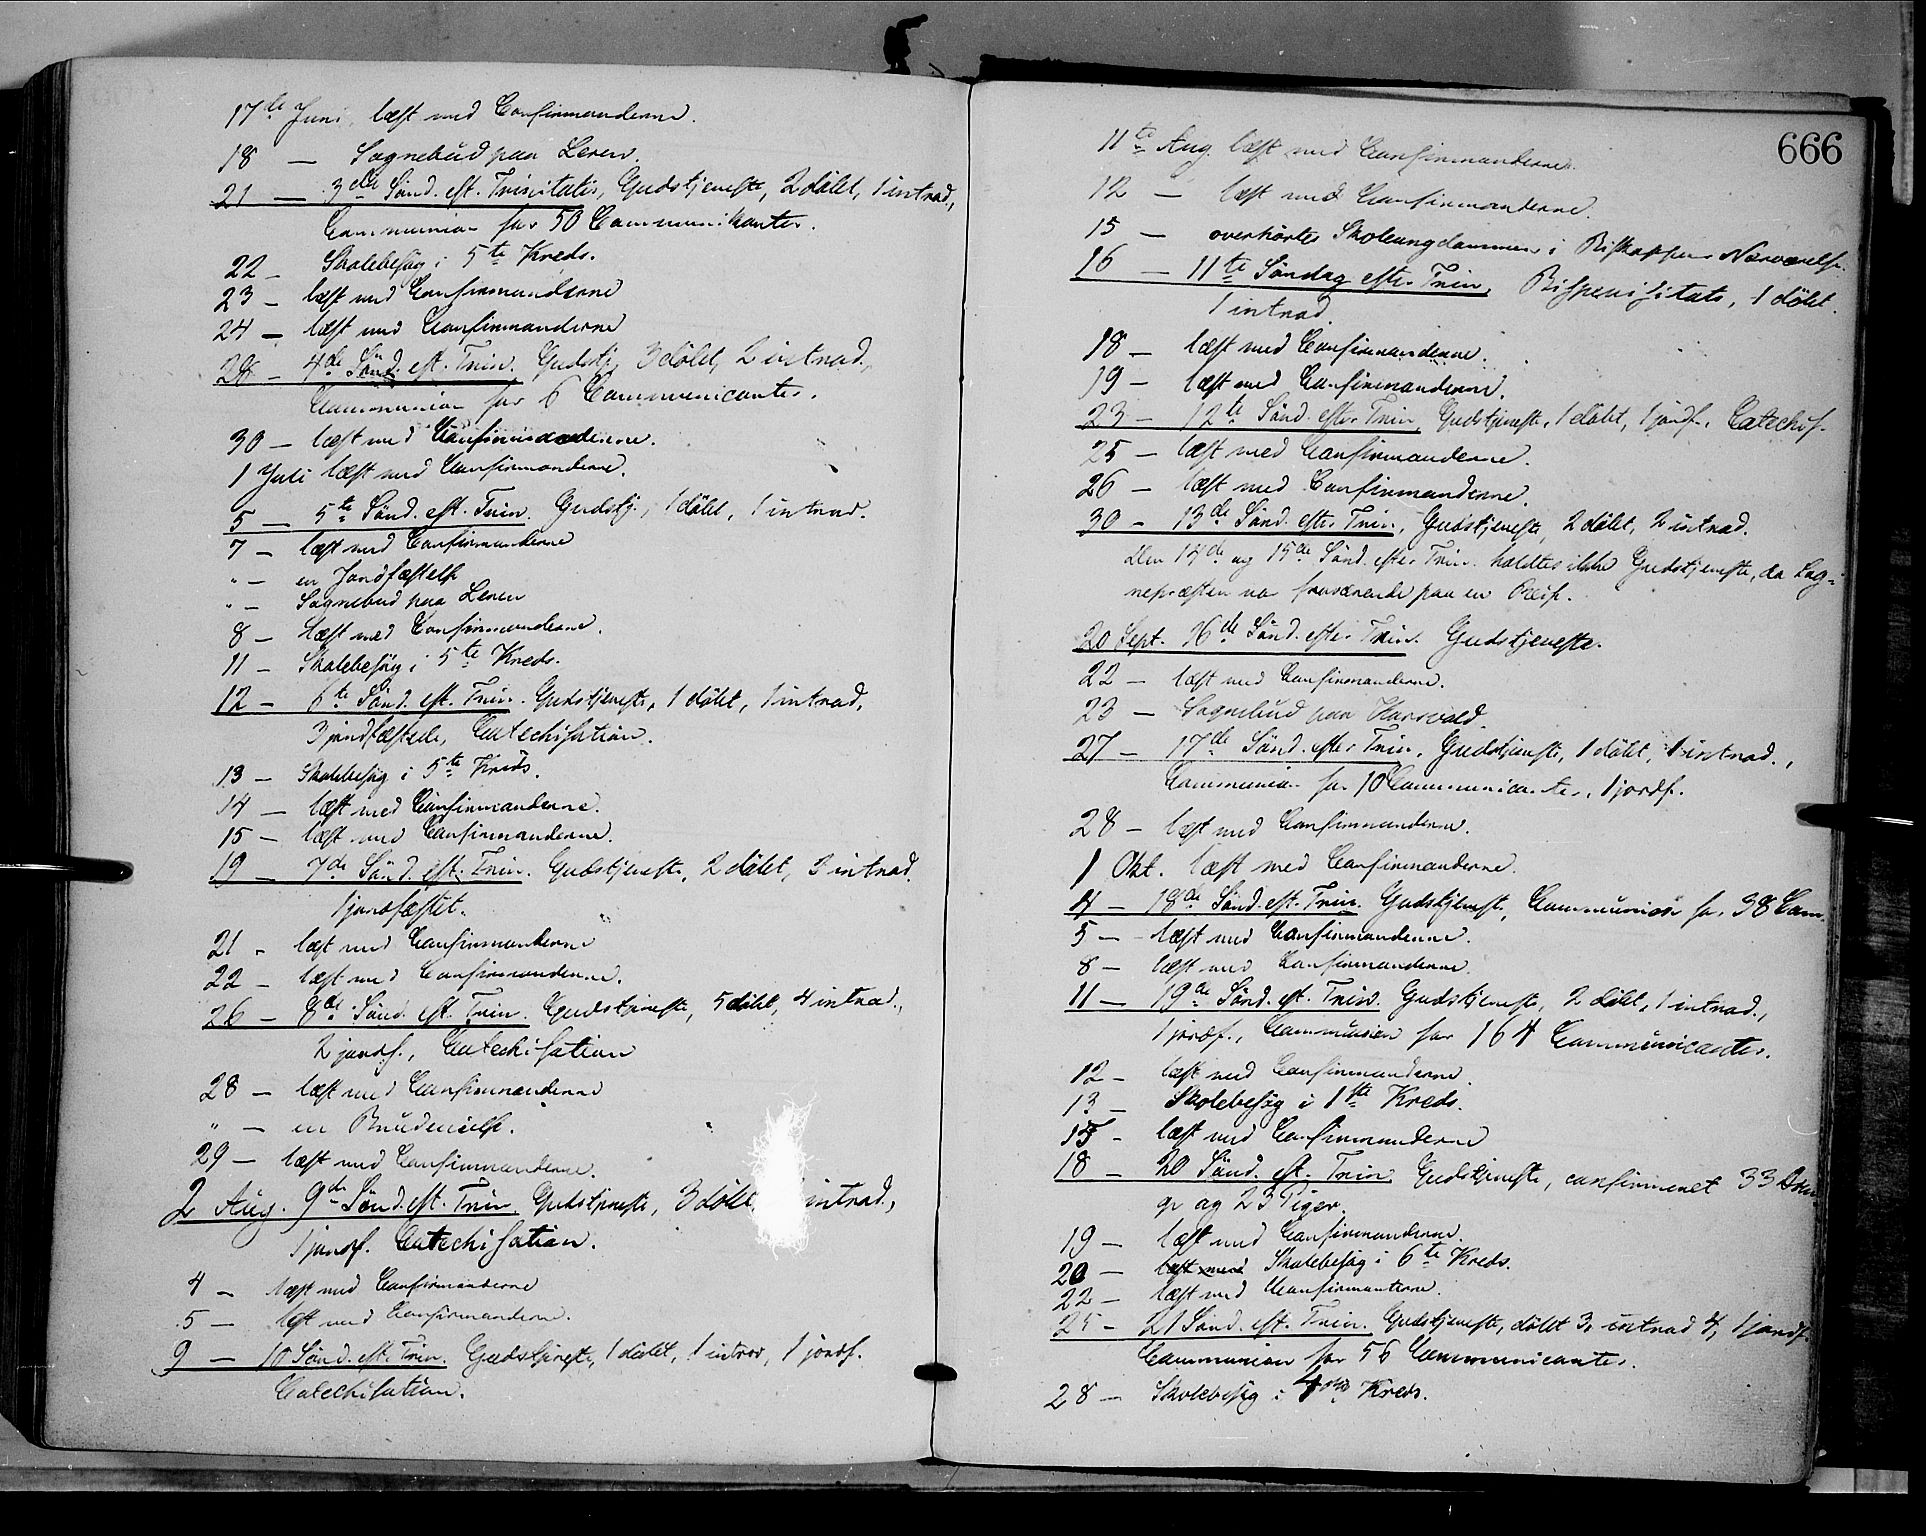 17de Juni læst med Confirmanderne.
18 — Sognebud paa Leren.
21 — 3die Sønd. eft. Trinitatis, Gudstjeneste, 2 døbt, 1 introd.,
Communion for 50 Communikanter.
22 — Skolebesøg i 5te Kreds.
23 — læst med Confirmanderne
24 — læst med Confirmanderne
28 — 4de Sønd. eft. Trin. Gudstj., 3 døbt, 2 introd.,
Communion for 6 Communicanter.
30 — læst med Confirmanderne.
1 Juli læst med Confirmanderne.
5 — 5te Sønd. eft. Trin. Gudstj., 1 døbt, 1 introd.
7 — læst med Confirmanderne
" — en Jordfæstelse
" — Sognebud paa Leren
8 — læst med Confirmanderne.
11 — Skolebesøg i 5te Kreds.
12 — 6te Sønd. eft. Trin. Gudstjeneste, 1 døbt, 1 introd.,
3 jordfæstede, Catechisation.
13 — Skolebesøg i 5te Kreds.
14 — læst med Confirmanderne.
15 — læst med Confirmanderne.
19 — 7de Sønd. eft. Trin. Gudstjeneste, 2 døbt, 3 introd.
1 jordfæstet.
21 - læst med Confirmanderne
22 — læst med Confirmanderne.
26 — 8de Sønd. eft. Trin. Gudstjeneste, 5 døbt, 4 introd.,
2 jordf., Catechisation
28 — læst med Confirmanderne
" — en Brudevielse.
29 — læst med Confirmanderne.
2 Aug. 9de Sønd. eft. Trin. Gudstjeneste, 3 døbt introd.,
1 jordf. Catechisation.
4 — læst med Confirmanderne
5 — læst med Confirmanderne.
9 — 10 Sønd. eft. Trin. Gudstjeneste, 1 døbt, 1 introd, 1 jordf.
Catechisation.
666
11te Aug. læst med Confirmanderne.
12 — læst med Confirmanderne.
15 — overhørtes Skoleungdommen i Biskoppens Nærværelse.
16 — 11te Søndag efter Trin, Bispevisitats, 1 døbt.
1 introd.
18 — læst med Confirmanderne.
19 — læst med Confirmanderne.
23 — 12te Sønd. efter Trin, Gudstjeneste, 1 døbt, 1 jordf., Catechis.
25 — læst med Confirmanderne.
26 — læst med Confirmanderne.
30 — 13de Sønd. efter Trin, Gudstjeneste, 2 døbt, 2 introd.
Den 14de og 15de Sønd. efter Trin. holdtes ikke Gudstjeneste, da Sog-
nepræsten var fraværende paa en Reise.
20 Sept. 16de Sønd. efter Trin. Gudstjeneste.
22 — læst med Confirmanderne.
23 — Sognebud paa
27 — 17de Sønd. efter Trin, Gudstjeneste, 1 døbt, 1 introd.,
Communion for 10 Communicanter, 1 jordf.
28 — læst med Confirmanderne.
1 Okt. læst med Confirmanderne.
4 — 18de Sønd. eft. Trin. Gudstjeneste, Communion for 38 Com.
5 — læst med Confirmanderne.
8 — læst med Confirmanderne.
11 — 19de Sønd. eft. Trin. Gudstjeneste, 2 døbt, 1 introd.,
1 jordf., Communion for 164 Communicanter.
12 — læst med Confirmanderne.
13 — Skolebesøg i 1ste Kreds.
15 - læst med Confirmanderne
18 — 20 Sønd. eft. Trin. Gudstjeneste, confirmeret 33 Dren
ge og 23 Piger.
19 — læst med Confirmanderne.
20 — læst med Skolebesøg i 6te Kreds.
22 — læst med Confirmanterne.
25 — 21 Sønd. eft. Trin. Gudstjeneste, døbt 3, introd 4, 1 jordf.
Communion for 56 Communicanter.
28 — Skolebesøg i 4de Kreds.